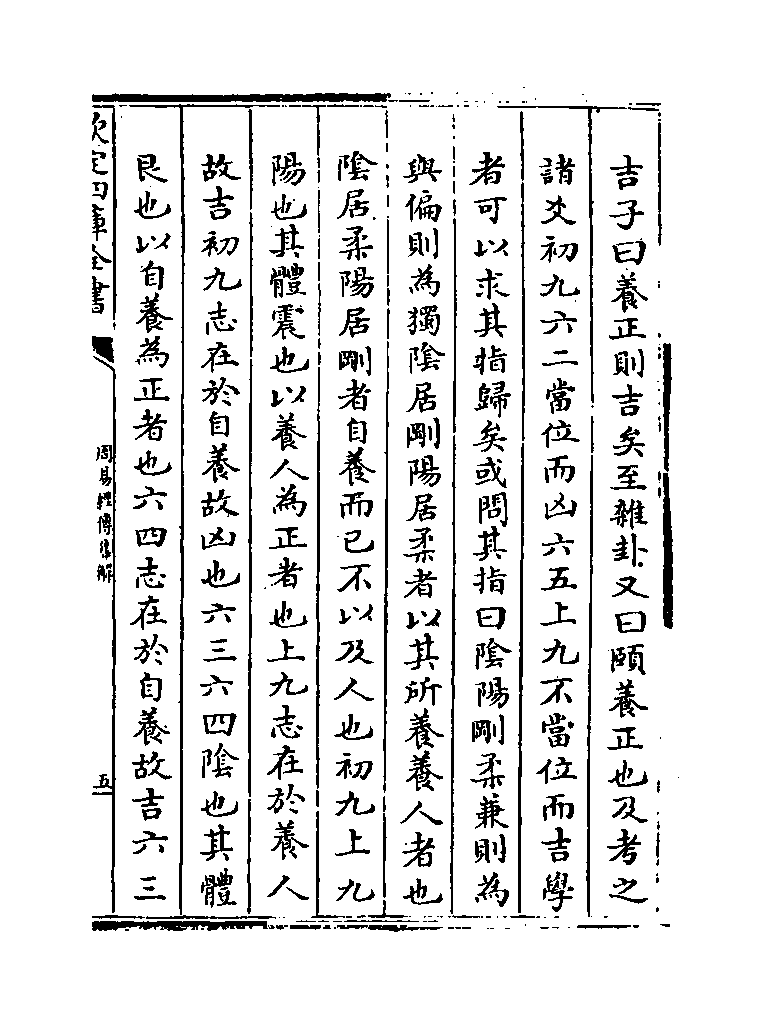 吉子曰養正則吉矣至雜卦又曰頤養正也及考之
諸爻初九六二當位而凶六五上九不當位而吉學
者可以求其指歸矣或問其指曰陰陽剛柔兼則為
與偏則為獨陰居剛陽居柔者以其所養養人者也
陰居柔陽居剛者自養而已不以及人也初九上九
陽也其體震也以養人為正者也上九志在於養人
故吉初九志在於自養故凶也六三六四陰也其體
艮也以自養為正者也六四志在於自養故吉六三
欽定四庫全書
周易經傳集解
五